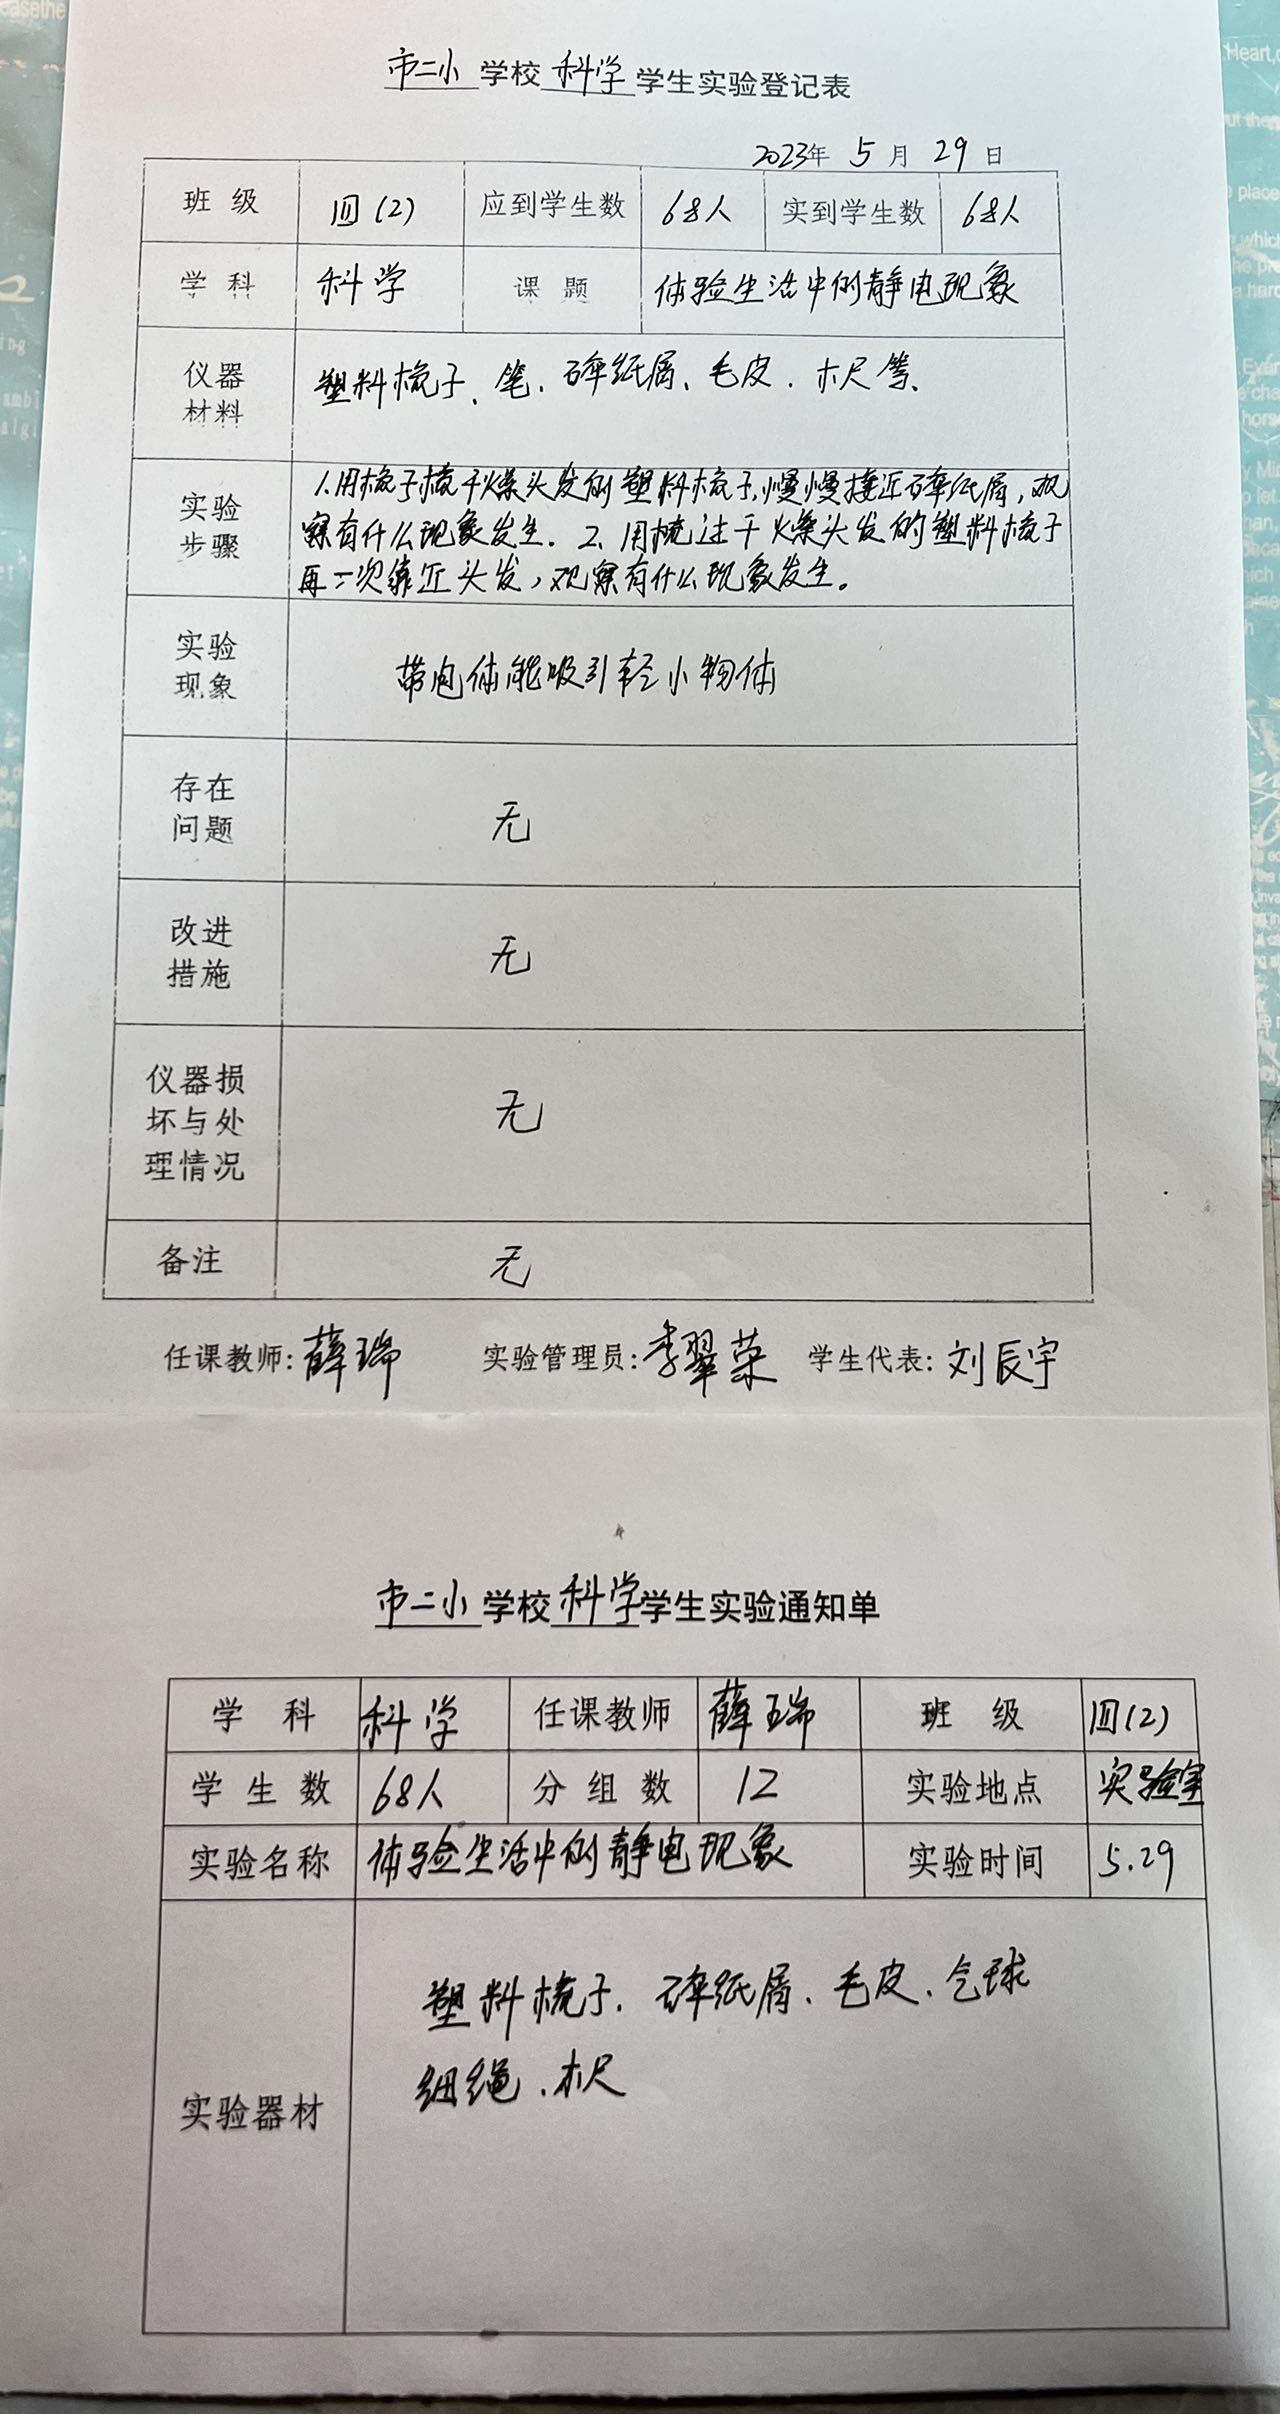 市二小 学校 科学 学生实验登记表
2023年 5 月 29 日
班 级 四(2) 应到学生数 68人 实到学生数 68人
学 科 科学 课 题 体验生活中的静电现象
仪器材料 塑料梳子、笔、碎纸屑、毛皮、木尺等、
实验步骤
1.用梳子梳干燥头发的塑料梳子,慢慢接近碎纸屑,观
察有什么现象发生. 2、用梳过干燥头发的塑料梳子
再一次靠近头发,观察有什么现象发生。
实验现象 带电体能吸引轻小物体
存在问题 无
改进措施 无
仪器损坏与处理情况 无
备注 无
任课教师:薛瑞 实验管理员:李翠荣 学生代表:刘辰宇
市二小 学校 科学 学生实验通知单
学 科 科学 任课教师 薛瑞 班 级 四(2)
学 生 数 68人 分 组 数 12 实验地点 实验室
实验名称 体验生活中的静电现象 实验时间 5.29
实验器材
塑料梳子、碎纸屑、毛皮、气球
细绳、木尺